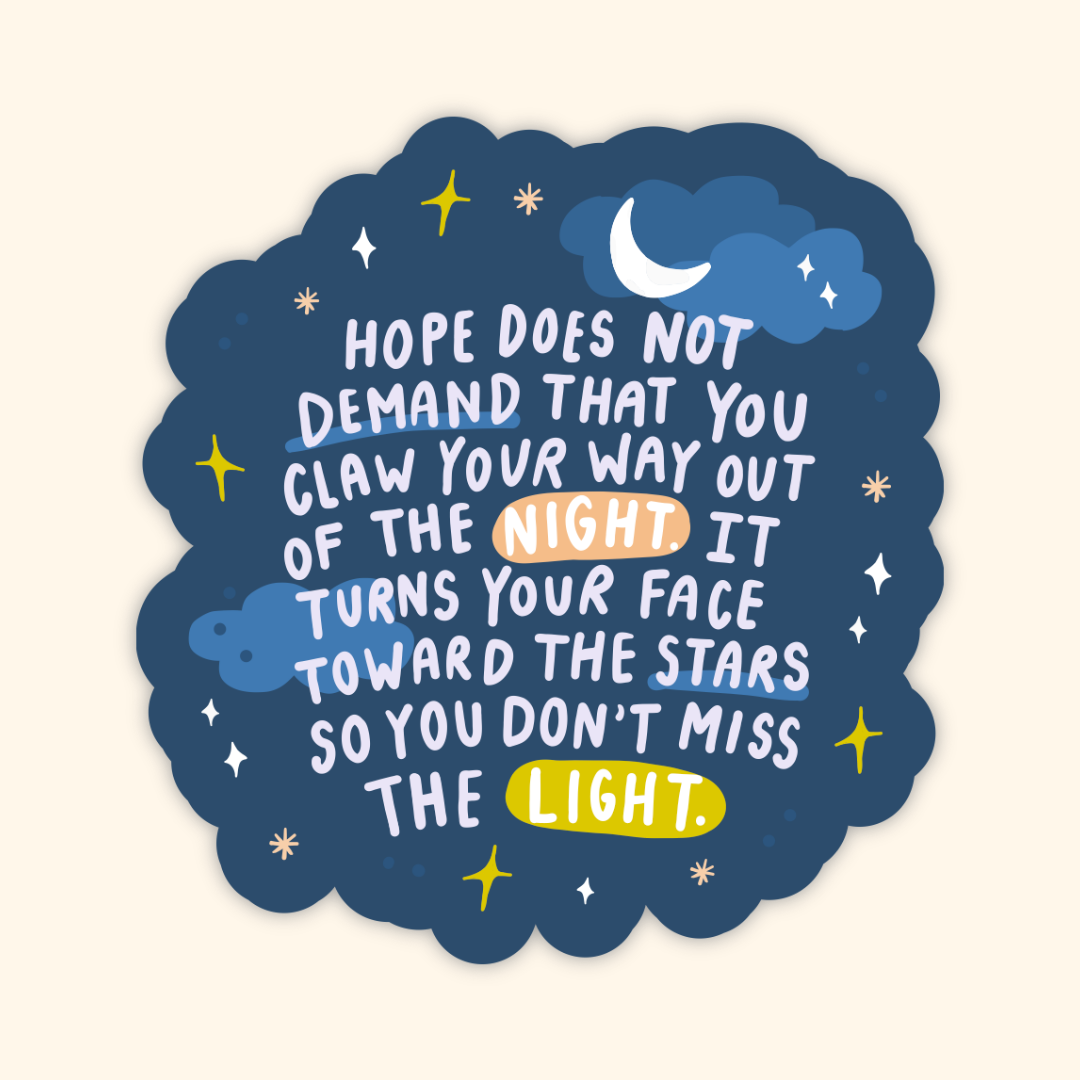 HOPE DOES NOT
DEMAND THAT YOU
CLAW YOUR WAY OUT
OF THE NIGHT. IT
TURNS YOUR FACE
TOWARD THE STARS
SO YOU DON'T MISS
THE LIGHT.